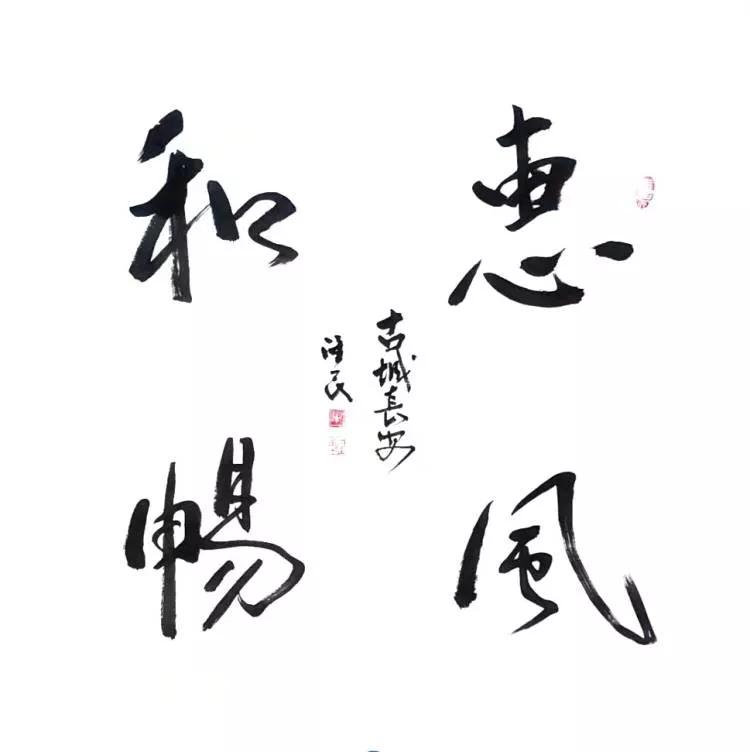 惠風
和暢
古城長安
民